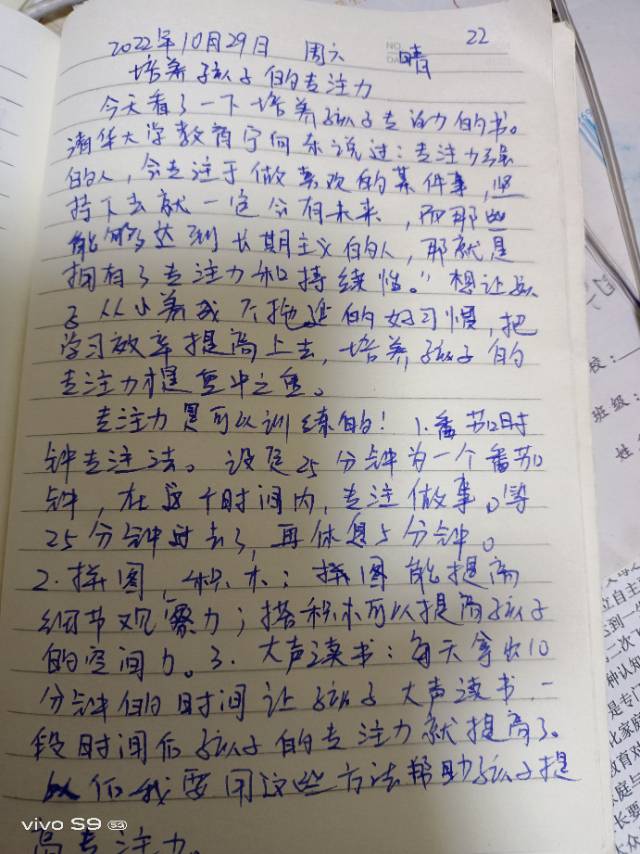 22
2022年10月29日 周六 晴
培养孩子的专注力
今天看了一下培养孩子专注力的书。
清华大学教育宁向东说过：专注力强
的人，会专注于做喜欢的某件事，坚
持下去就一定会有未来，而那些
能够达到长期主义的人，那就是
拥有了专注力和持续性。”想让孩
子从小养成不拖延的好习惯，把
学习效率提高上去，培养孩子的
专注力才是重中之重。
专注力是可以训练的！1.番茄时
钟专注法。设定25分钟为一个番茄
钟，在这个时间内，专注做事。等
25分钟过去了，再休息5分钟。
2.拼图，积木；拼图能提高
细节观察力；搭积木可以提高孩子
的空间力。3.大声读书：每天拿出10
分钟的时间让孩子大声读书，一
段时间后孩子的专注力就提高了。
以后我要用这些方法帮助孩子提
高专注力。
vivo S9
校：
班级：
姓
立自主
达到一
二次
种认知
是专
化家庭
教育对
家庭
长要